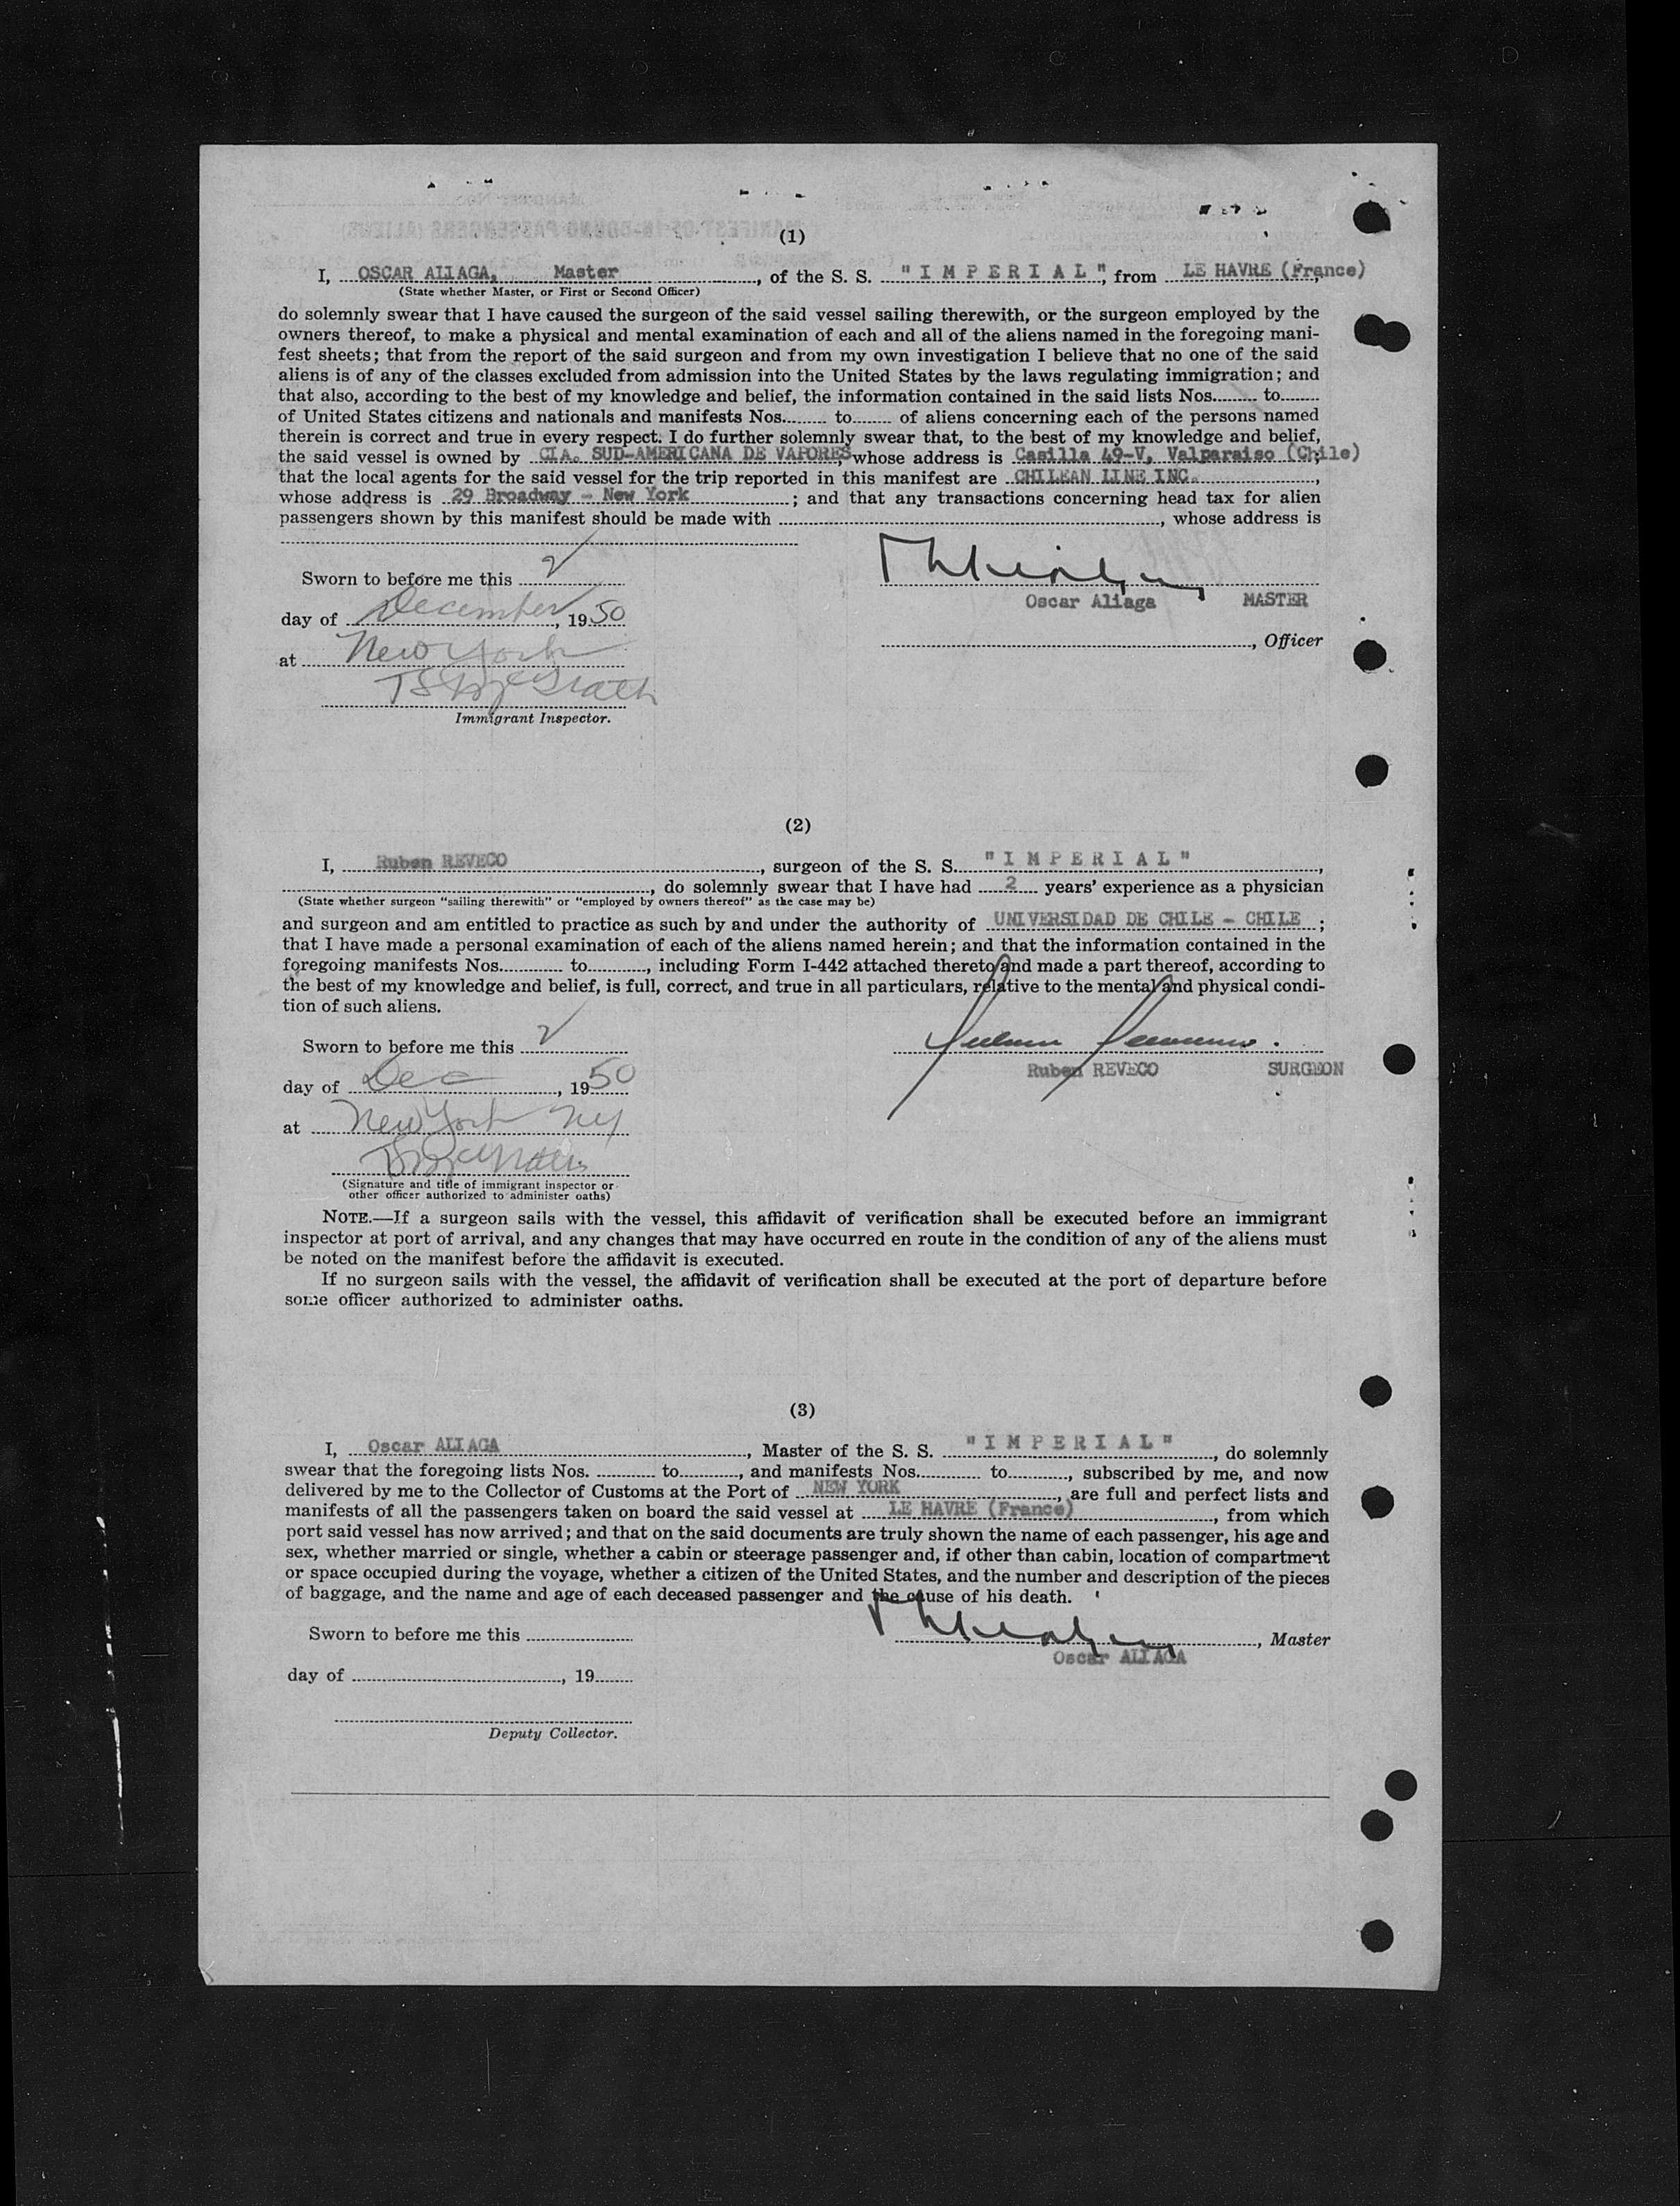 (1)
I, OSCAR ALIAGA, Master, of the S. S. "I M P E R I A L", from LE HAVRE (France),
(State whether Master, or First or Second Officer)
do solemnly swear that I have caused the surgeon of the said vessel sailing therewith, or the surgeon employed by the
owners thereof, to make a physical and mental examination of each and all of the aliens named in the foregoing mani-
fest sheets; that from the report of the said surgeon and from my own investigation I believe that no one of the said
aliens is of any of the classes excluded from admission into the United States by the laws regulating immigration; and
that also, according to the best of my knowledge and belief, the information contained in the said lists Nos......... to........
of United States citizens and nationals and manifests Nos......... to........ of aliens concerning each of the persons named
therein is correct and true in every respect. I do further solemnly swear that, to the best of my knowledge and belief,
the said vessel is owned by CIA. SUD-AMERICANA DE VAPORES, whose address is Casilla 49-V, Valparaiso (Chile);
that the local agents for the said vessel for the trip reported in this manifest are CHILEAN LINE INC.,
whose address is 29 Broadway - New York; and that any transactions concerning head tax for alien
passengers shown by this manifest should be made with ........................, whose address is
Sworn to before me this 2
day of December, 1950
Oscar Aliaga MASTER
at New York
, Officer
T S McGrath
Immigrant Inspector.
(2)
I, Ruben REVECO, surgeon of the S. S. "I M P E R I A L",
, do solemnly swear that I have had 2 years' experience as a physician
(State whether surgeon "sailing therewith" or "employed by owners thereof" as the case may be)
and surgeon and am entitled to practice as such by and under the authority of UNIVERSIDAD DE CHILE - CHILE;
that I have made a personal examination of each of the aliens named herein; and that the information contained in the
foregoing manifests Nos............ to..........., including Form I-442 attached thereto and made a part thereof, according to
the best of my knowledge and belief, is full, correct, and true in all particulars, relative to the mental and physical condi-
tion of such aliens.
Sworn to before me this 2
Ruben REVECO SURGEON
day of Dec, 1950
at New York NY
(Signature and title of immigrant inspector or
other officer authorized to administer oaths)
NOTE.—If a surgeon sails with the vessel, this affidavit of verification shall be executed before an immigrant
inspector at port of arrival, and any changes that may have occurred en route in the condition of any of the aliens must
be noted on the manifest before the affidavit is executed.
If no surgeon sails with the vessel, the affidavit of verification shall be executed at the port of departure before
some officer authorized to administer oaths.
(3)
I, Oscar ALIAGA, Master of the S. S. "I M P E R I A L", do solemnly
swear that the foregoing lists Nos. ........... to..........., and manifests Nos............ to..........., subscribed by me, and now
delivered by me to the Collector of Customs at the Port of NEW YORK, are full and perfect lists and
manifests of all the passengers taken on board the said vessel at LE HAVRE (France), from which
port said vessel has now arrived; and that on the said documents are truly shown the name of each passenger, his age and
sex, whether married or single, whether a cabin or steerage passenger and, if other than cabin, location of compartment
or space occupied during the voyage, whether a citizen of the United States, and the number and description of the pieces
of baggage, and the name and age of each deceased passenger and the cause of his death.
Sworn to before me this ....................
, Master
Oscar ALIAGA
day of ........................................, 19.......
Deputy Collector.